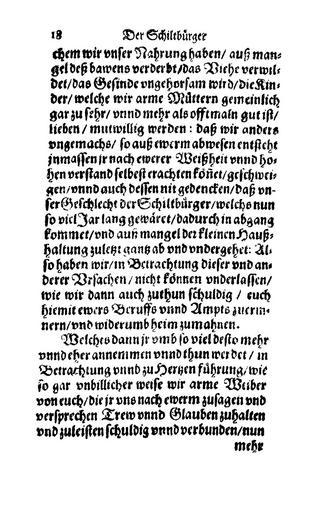 18 Der Schiltbürger
chem wir vnser Nahrung haben/ auß man-
gel deß bawens verderbt/das Viehe verwil-
det/das Gesinde vngehorsam wird/die Kin-
der/ welche wir arme Müttern gemeinlich
gar zu sehr/ vnnd mehr als offtmaln gut ist/
lieben/ mutwillig werden: daß wir anders
vngemachs/ so auß ewerm abwesen entsteht
jnmassen jr nach ewerer Weißheit vnnd ho-
hen verstand selbest erachten könnet/geschwei-
gen/vnnd auch dessen nit gedencken/daß vn-
ser Geschlecht der Schiltbürger/welchs nun
so viel Jar lang gewäret/dadurch in abgang
kommet/vnd auß mangel der kleinen Hauß-
haltung zuletzt gantz ab vnd vndergehet: Al-
so haben wir/ in Betrachtung dieser vnd an-
derer Vrsachen/ nicht können vnderlassen/
wie wir dann auch zuthun schuldig/ euch
hiemit ewers Beruffs vnnd Ampts zuerin-
nern/vnd widerumb heim zumahnen.
Welches dann jr vmb so viel desto mehr
vnnd eher annemmen vnnd thun werdet/ in
Betrachtung vnnd zu Hertzen führung/ wie
so gar vnbillicher weise wir arme Weiber
von euch/die jr vns nach ewerm zusagen vnd
versprechen Trew vnnd Glauben zuhalten
vnd zuleisten schuldig vnnd verbunden/nun
mehr